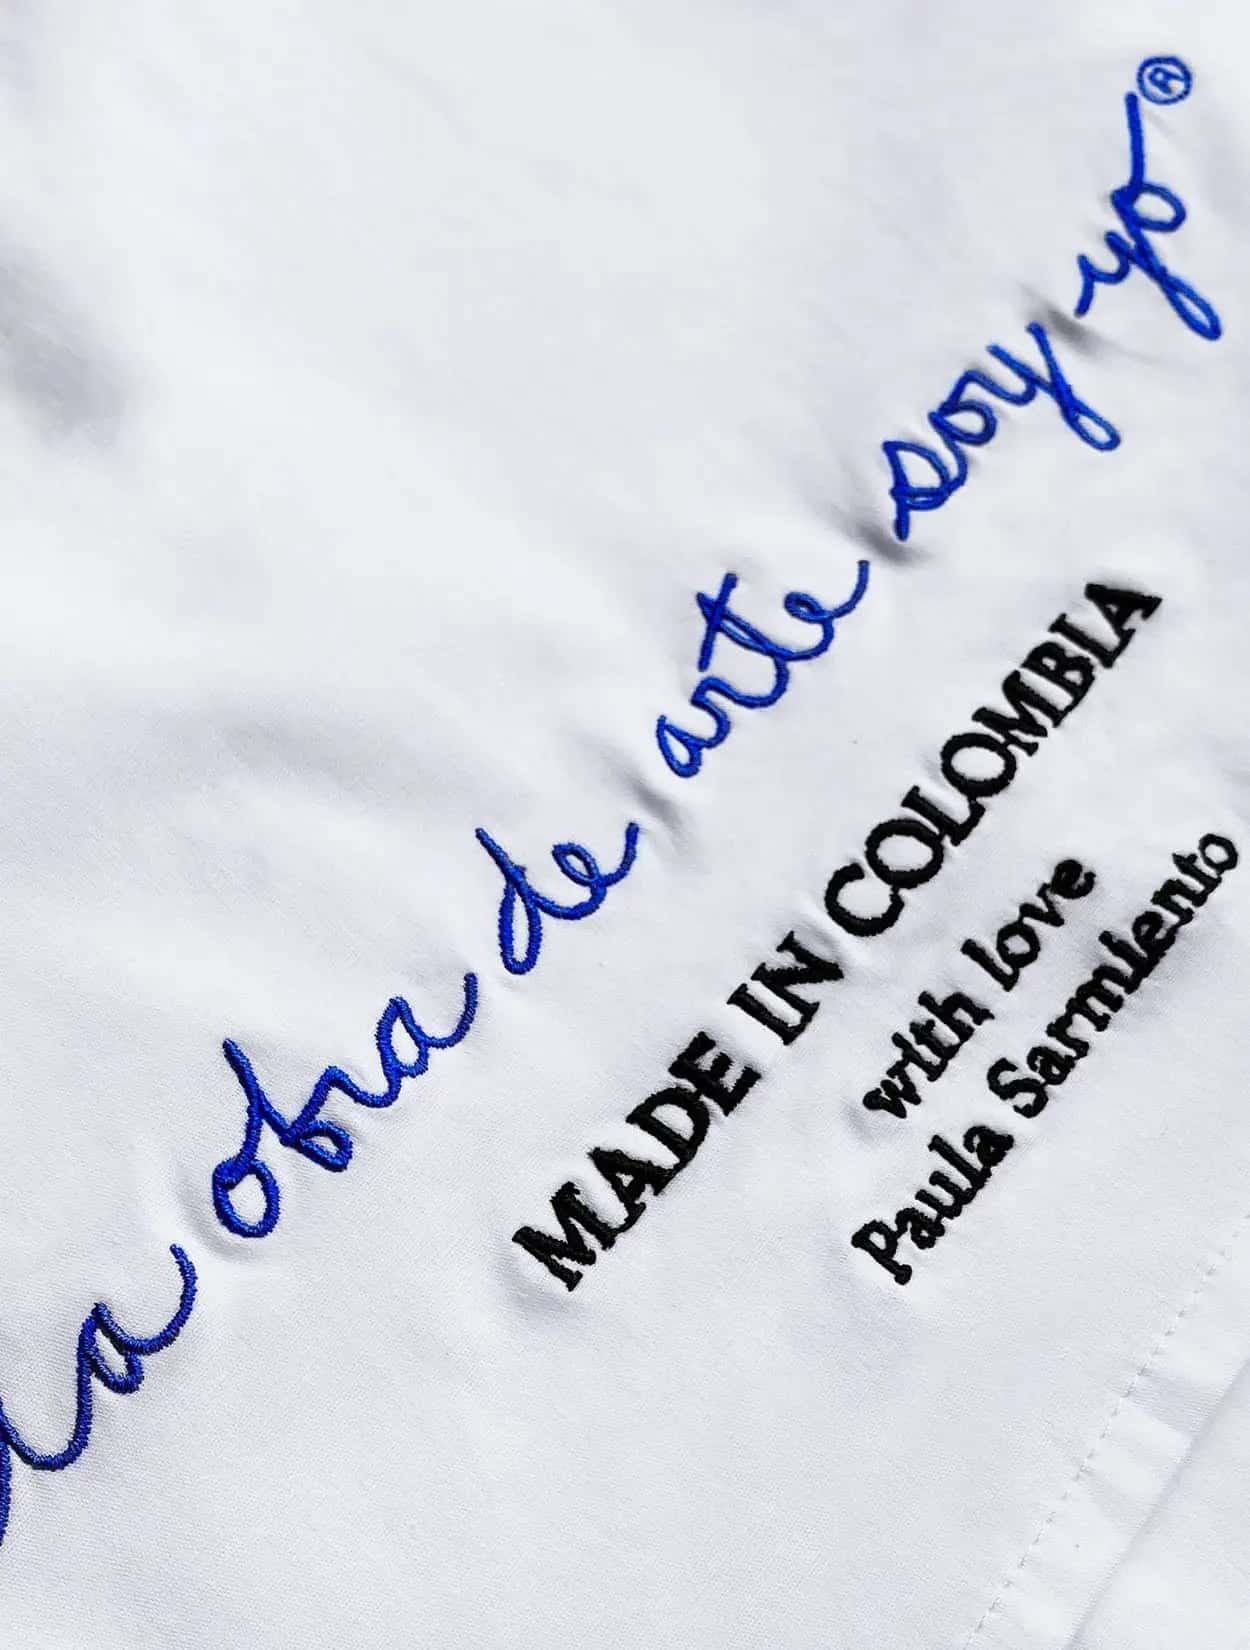 la obra de arte soy yo®
MADE IN COLOMBIA
with love
Paula Sarmiento